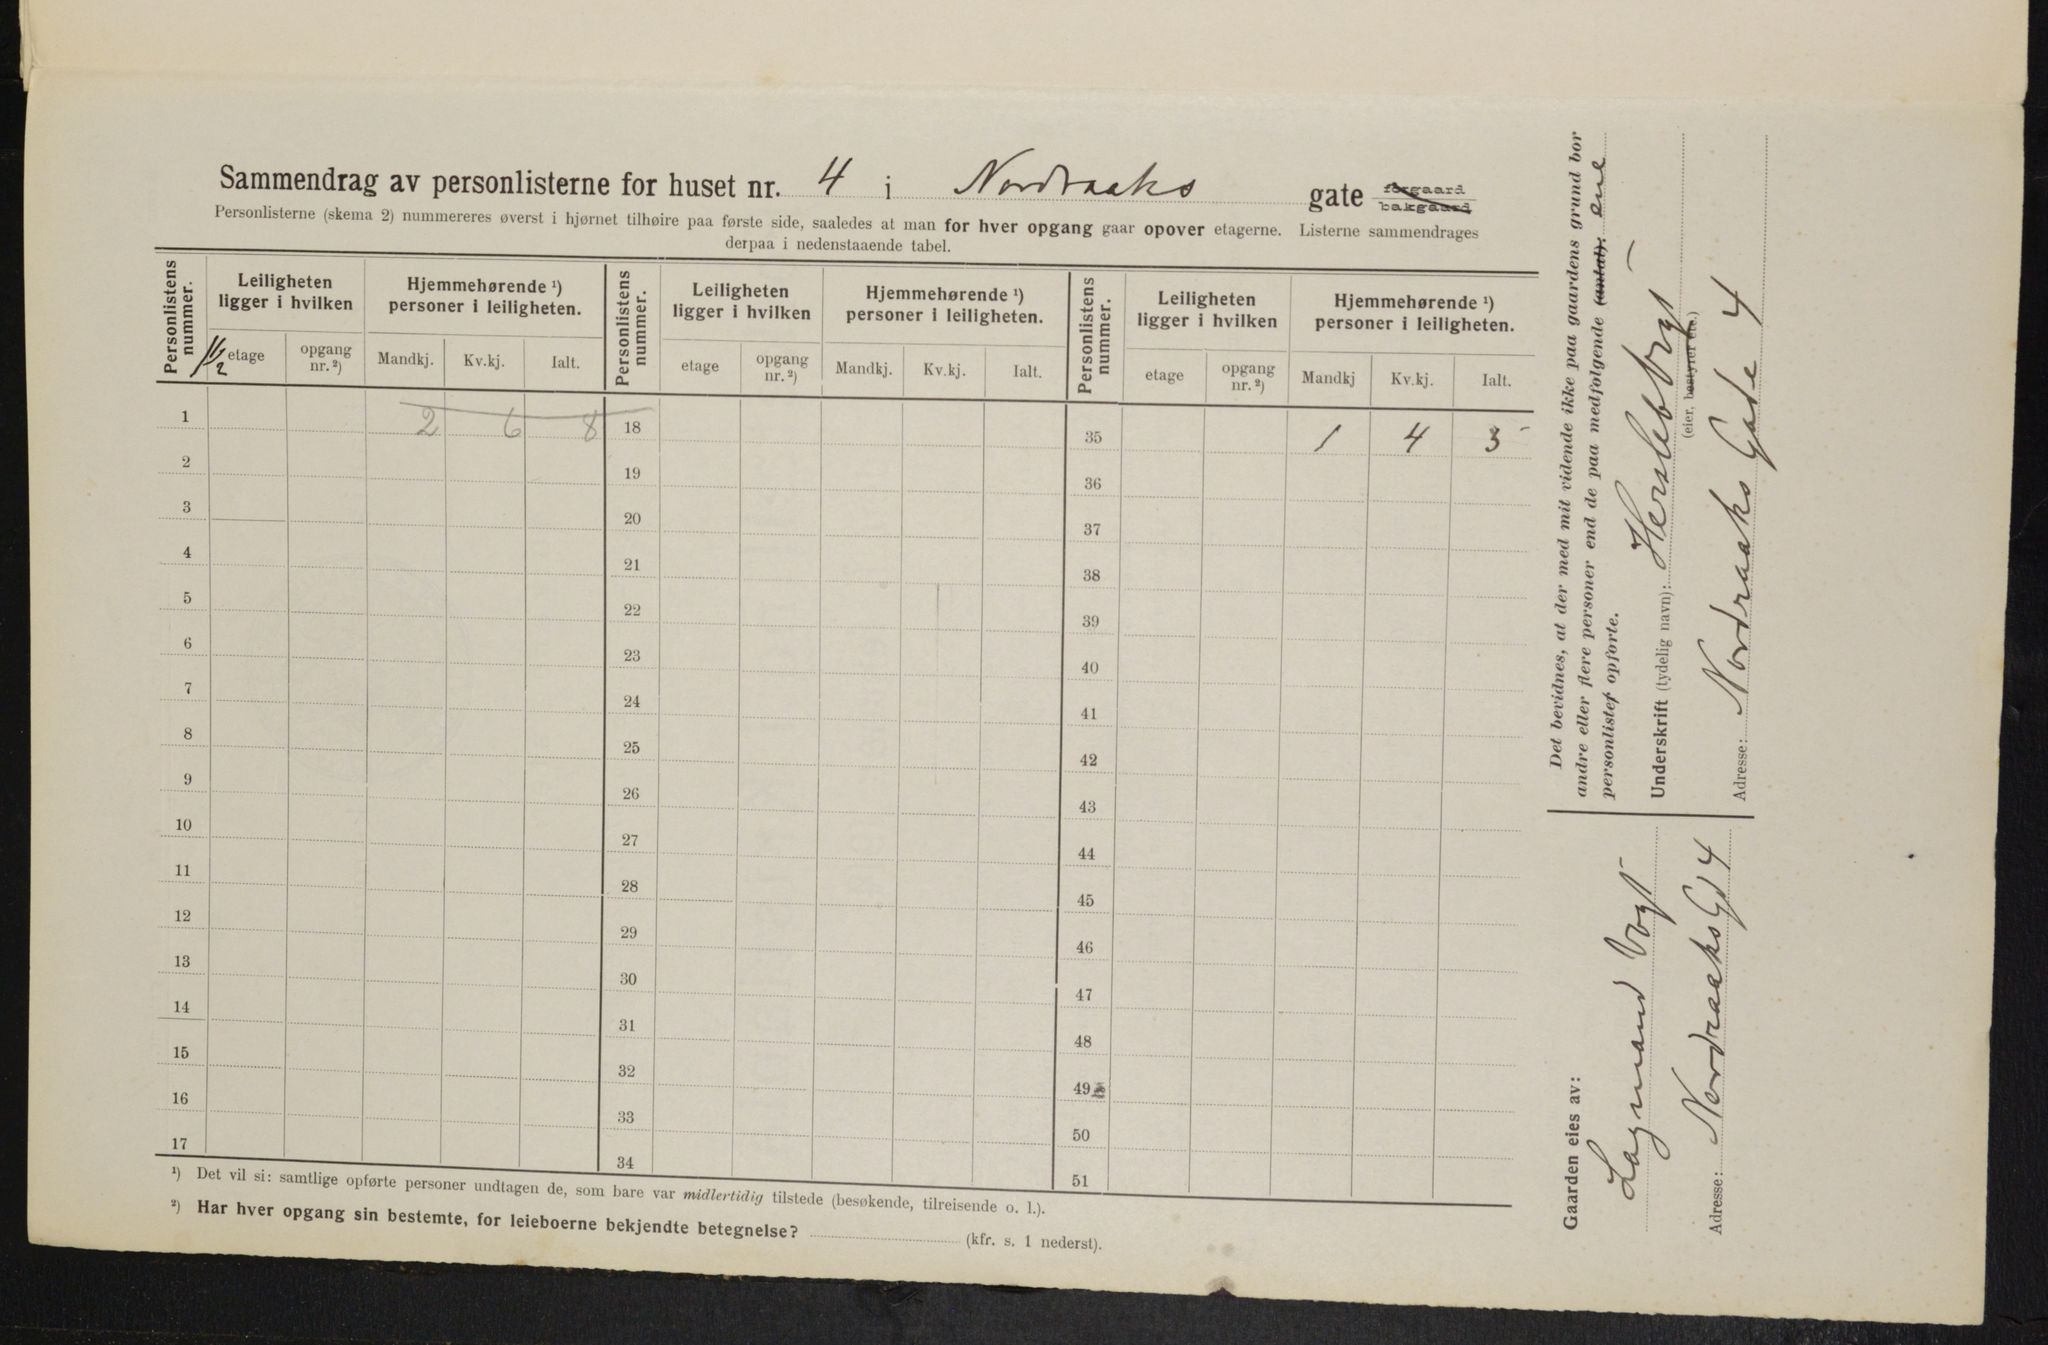 Sammendrag av personlisterne for huset nr. 4 i Nordraaks gate forgaard bakgaard
Personlisterne (skema 2) nummereres øverst i hjørnet tilhøire paa første side, saaledes at man for hver opgang gaar opover etagerne. Listerne sammendrages
derpaa i nedenstaaende tabel.
Personlistens nummer. Leiligheten ligger i hvilken Hjemmehørende ¹) personer i leiligheten. Personlistens nummer. Leiligheten ligger i hvilken Hjemmehørende ¹) personer i leiligheten. Personlistens nummer. Leiligheten ligger i hvilken Hjemmehørende ¹) personer i leiligheten.
1/2 etage opgang nr. ²) Mandkj. Kv.kj. Ialt. etage opgang nr. ²) Mandkj. Kv.kj. Ialt. etage opgang nr. ²) Mandkj Kv.kj. Ialt.
1 2 6 8 18 35 1 4 5
2 19 36
3 20 37
4 21 38
5 22 39
6 23 40
7 24 41
8 25 42
9 26 43
10 27 44
11 28 45
12 29 46
13 30 47
14 31 48
15 32 49
16 33 50
17 34 51
¹) Det vil si: samtlige opførte personer undtagen de, som bare var midlertidig tilstede (besøkende, tilreisende o. l.).
²) Har hver opgang sin bestemte, for leieboerne bekjendte betegnelse? (kfr. s. 1 nederst).
Det bevidnes, at der med mit vidende ikke paa gaardens grund bor
andre eller flere personer end de paa medfølgende (antal): ene
personlister opførte.
Underskrift (tydelig navn): Hersleb Vogt
(eier, bestyrer etc.)
Adresse: Nordraaks Gade 4
Gaarden eies av:
Lagmand Vogt
Adresse: Nordraaks Gd 4